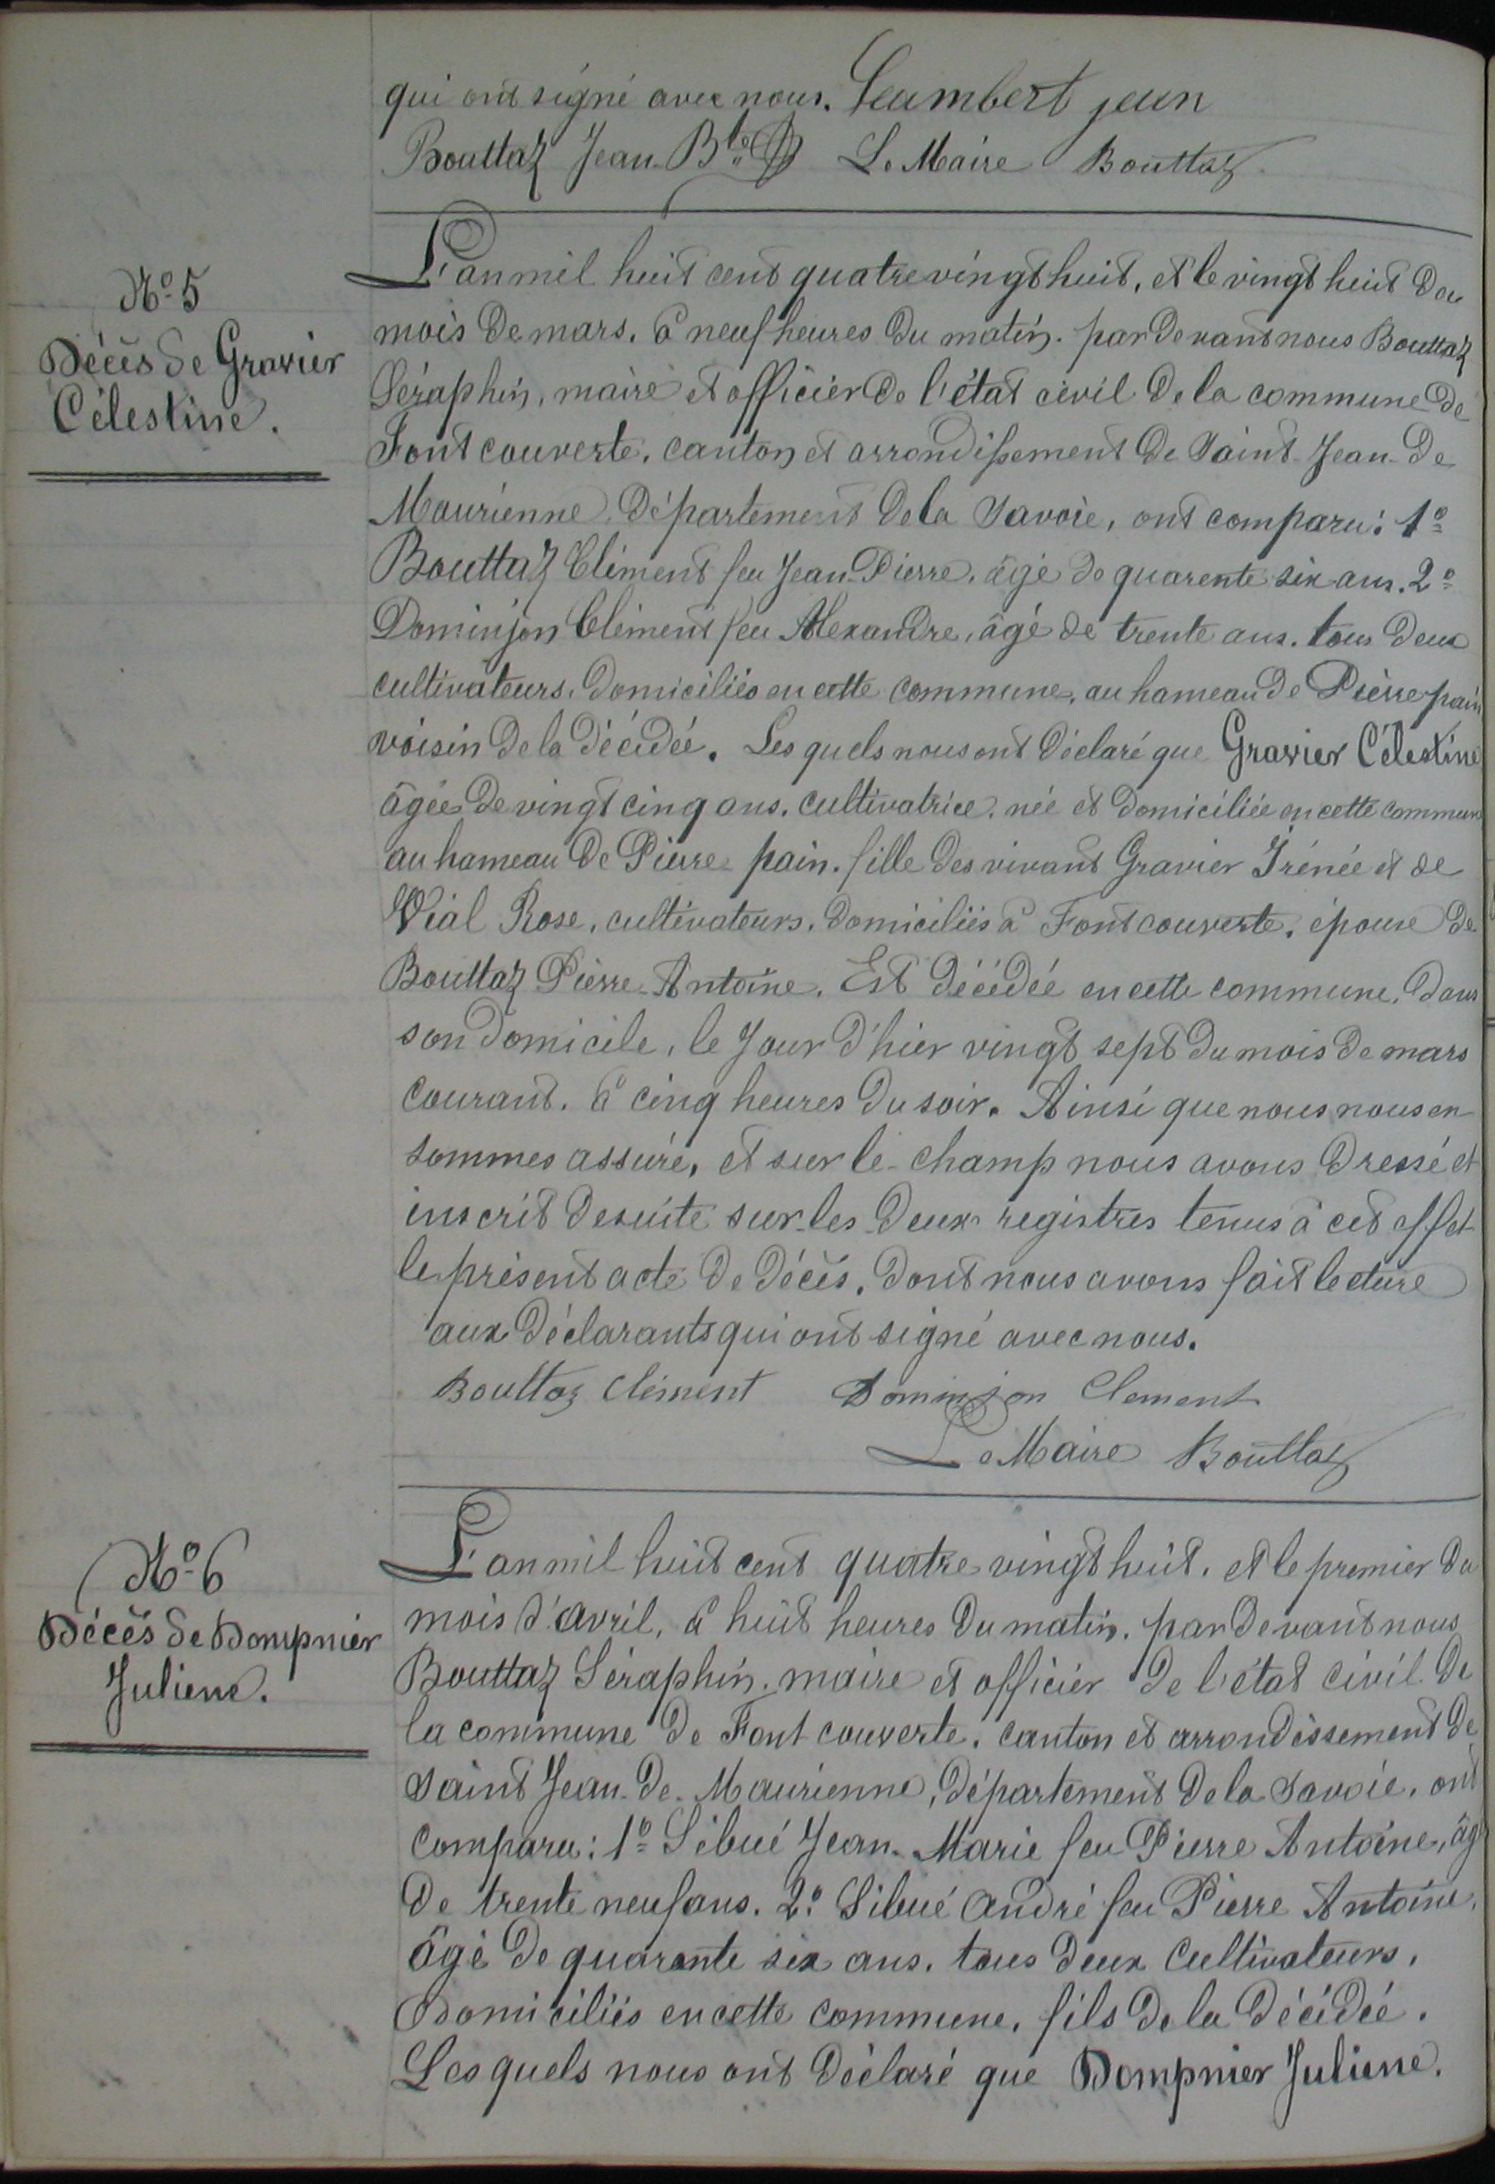 qui ont signé avec nous. Humbert jean
Bouttaz Jean-Bte Le Maire Bouttaz
N° 5
Décès de Gravier
Célestine.
L'an mil huit cent quatre vingt huit, et le vingt huit du
mois de mars, à neuf heures du matin. par devant nous Bouttaz
Séraphin, maire et officier de l'état civil de la commune de
Font couverte, canton et arrondissement de Saint-Jean-de
Maurienne, département de la Savoie, ont comparu: 1°
Bouttaz Clément feu Jean-Pierre, âgé de quarente six ans. 2°
Dominjon Clément feu Alexandre, âgé de trente ans. tous deux
cultivateurs, domiciliés en cette commune, au hameau de Pierre pain
voisin de la décédée. Les quels nous ont déclaré que Gravier Célestine
âgée de vingt cinq ans, cultivatrice, née et domiciliée en cette commune
au hameau de Pierre pain. fille des vivant Gravier Irénée et de
Vial Rose, cultivateurs, domiciliés à Font couverte, épouse de
Bouttaz Pierre-Antoine. Est décédée en cette commune, dans
son domicile, le jour d'hier vingt sept du mois de mars
courant, à cinq heures du soir. Ainsi que nous nous en
sommes assuré, et sur le-champ nous avons dressé et
inscrit desuite sur-les-deux registres tenus à cet effet
le présent acte de décès, dont nous avons fait lecture
aux déclarants qui ont signé avec nous.
Bouttaz Clément Dominjon Clement
Le Maire Bouttaz
N° 6
Décès de Dompnier
Juliene.
L'an mil huit cent quatre vingt huit, et le premier du
mois d'avril, à huit heures du matin, par devant nous
Bouttaz Séraphin, maire et officier de l'état civil de
la commune de Font couverte, canton et arrondissement de
Saint Jean-de-Maurienne, département de la Savoie, ont
comparu: 1° Sibué Jean-Marie feu Pierre Antoine, âgé
de trente neuf ans. 2° Sibué André feu Pierre Antoine,
âgé de quarante six ans, tous deux cultivateurs,
domiciliés en cette commune, fils de la décédée.
Les quels nous ont déclaré que Dompnier Juliene.